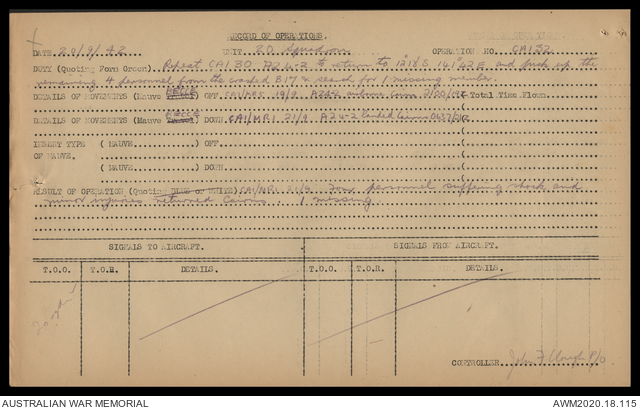 RECORD OF OPERATIONS.
DATE 20/9/42 UNIT 20 Squadron OPERATION NO. CA132
DUTY (Quoting Form Green) Repeat CA130 A24-2 to return to 12°18'S 141°42'E and pick up the
remaining 4 personnel from the crashed B17 & search for 1 missing member.
DETAILS OF MOVEMENTS (Mauve OFF CA1/MR5 19/9 A24-2 airborne Cairns Total Time Flown.
DETAILS OF MOVEMENTS (Mauve DOWN CA1/MR1 21/9 A24-2 landed Cairns 0637/21Z
INSERT TYPE ( MAUVE OFF
OF MAUVE. ( MAUVE
( MAUVE ) DOWN
RESULT OF OPERATION (Quoting BLUE or WHITE) CA1/MR1 21/9 Four personnel suffering shock and
minor injuries returned Cairns 1 missing
SIGNALS TO AIRCRAFT. SIGNALS FROM AIRCRAFT.
T.O.O. T.O.R. DETAILS. T.O.O. T.O.R. DETAILS.
CONTROLLER John F Clough P/O
AUSTRALIAN WAR MEMORIAL AWM2020.18.115